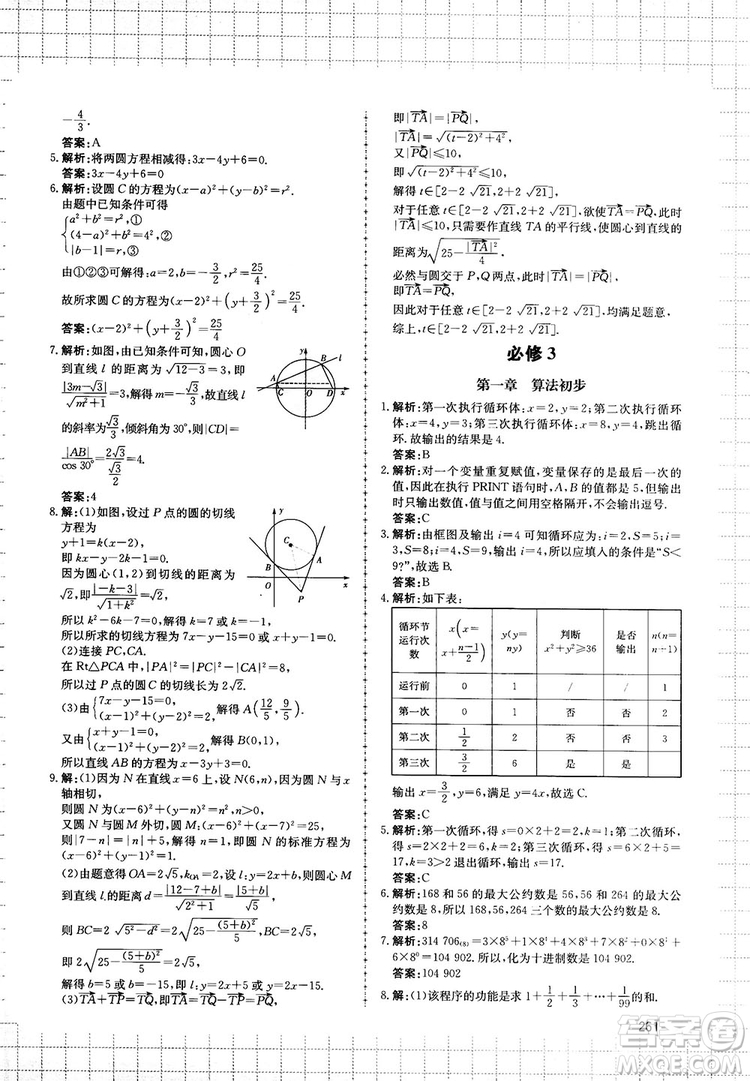 $-\frac{4}{3}$.
答案:A
5.解析:将两圆方程相减得:3x-4y+6=0.
答案:3x-4y+6=0
6.解析:设圆 C 的方程为(x-a)²+(y-b)²=r².
由题中已知条件可得
{a²+b²=r²,①
(4-a)²+b²=r²,②
|b-1|=r,③
由①②③可解得:a=2,b=-3/2,r²=25/4.
故所求圆 C 的方程为(x-2)²+(y+3/2)²=25/4.
答案:(x-2)²+(y+3/2)²=25/4
7.解析:如图,由已知条件可知,圆心 O
到直线 l 的距离为√(12-3)=3,即
|3m-√3|/√(m²+1)=3,解得 m=-√3/3,所以直线 l
的斜率为√3/3,倾斜角为 30°,则|CD|=
|AB|/cos 30°=2√3/(√3/2)=4.
答案:4
A B l C O D x
8.解:(1)如图,设过 P 点的圆的切线
方程为
y+1=k(x-2).
即 kx-y-2k-1=0.
因为圆心(1,2)到切线的距离为
√2,即|-k-3|/√(1+k²)=√2.
y C A B O x P
k²-6k-7=0,解得 k=7 或 k=-1,
所以所求的切线方程为 7x-y-15=0 或 x+y-1=0.
(2)连接 PC,CA.
在 Rt△PCA 中|PA|²=|PC|²-|CA|²=8,
所以过 P 点的圆 C 的切线长为 2√2.
(3)由{7x-y-15=0, (x-1)²+(y-2)²=2,解得 A(12/5,9/5).
又由{x+y-1=0, (x-1)²+(y-2)²=2,解得 B(0,1),
所以直线 AB 的方程为 x-3y+3=0.
9.解:(1)因为 N 在直线 x=6 上,设 N(6,n),因为与 x
轴相切,
则圆 N 为(x-6)²+(y-n)²=n²,n>0
又圆 N 与圆 M 外切,圆 M:(x-6)²+(y-7)²=25,
则|7-n|=|n|+5,解得 n=1,即圆 N 的标准方程为
(x-6)²+(y-1)²=1.
(2)由题意得 OA=2√5,k_OA=2,设 l:y=2x+b,则圆心 M
到直线 l 的距离 d=|12-7+b|/√(2²+1)=|5+b|/√5,
则 BC=2√(5²-d²)=2√(25-(5+b)²/5),BC=2√5,
即 2√(25-(5+b)²/5)=2√5,
解得 b=5 或 b=-15,即 l:y=2x+5 或 y=2x-15.
(3)TA+TP=TQ,即 TA=TQ-TP=PQ,
即|TA|=|PQ|,
|TA|=√((t-2)²+4²),
又|PQ|≤10,
即√((t-2)²+4²)≤10,
解得 t∈[2-2√21,2+2√21],
对于任意 t∈[2-2√21,2+2√21],欲使TA=PQ,此时
|TA|≤10,只需要作直线 TA 的平行线,使圆心到直线的
距离为√(25-|TA|²/4),
必然与圆交于 P,Q 两点,此时|TA|=|PQ|,
即TA=PQ,
因此对于任意 t∈[2-2√21,2+2√21],均满足题意,
综上,t∈[2-2√21,2+2√21].
必修 3
第一章 算法初步
1.解析:第一次执行循环体:x=2,y=2;第二次执行循环
体:x=4,y=3;第三次执行循环体:x=8,y=4,跳出循
环.故输出的结果是 4.
答案:B
2.解析:对一个变量重复赋值,变量保存的是最后一次的
值,因此在执行 PRINT 语句时,A,B 的值都是 5,输出
时只输出数值,值与值之间用空格隔开,不会输出逗号.
答案:C
3.解析:由框图及输出 i=4 可知循环应为:i=2,S=5;i=
3,S=8;i=4,S=9,输出 i=4,所以应填入的条件是“S<
9?”,故选 B.
答案:B
4.解析:如下表:
循环节运行次数 | x(x=x+(n-1)/2) | y(y=ny) | 判断x²+y²≥36 | 是否输出 | n(n=n+1)
运行前 | 0 | 1 | / | / | 1
第一次 | 0 | 1 | 否 | 否 | 2
第二次 | 1/2 | 2 | 否 | 否 | 3
第三次 | 3/2 | 6 | 是 | 是
输出 x=3/2,y=6,满足 y=4x,故选 C.
答案:C
5.解析:第一次循环,得 s=0×2+2=2,k=1;第二次循环,
得 s=2×2+2=6,k=2;第三次循环,得 s=6×2+5=17,
k=3>2,退出循环,输出 s=17.故选 C.
答案:C
6.解析:168 和 56 的最大公约数是 56,56 和 264 的最大公
约数是 8,所以 168,56,264 三个数的最大公约数是 8.
答案:8
7.解析:314 706₍₈₎=3×8⁵+1×8⁴+4×8³+7×8²+0×8¹+
6×8⁰=104 902,所以,化为十进制数是 104 902.
答案:104 902
8.解:(1)该程序的功能是求 1+1/2+1/3+…+1/99的和.
261
答案圈
MXQE.COM